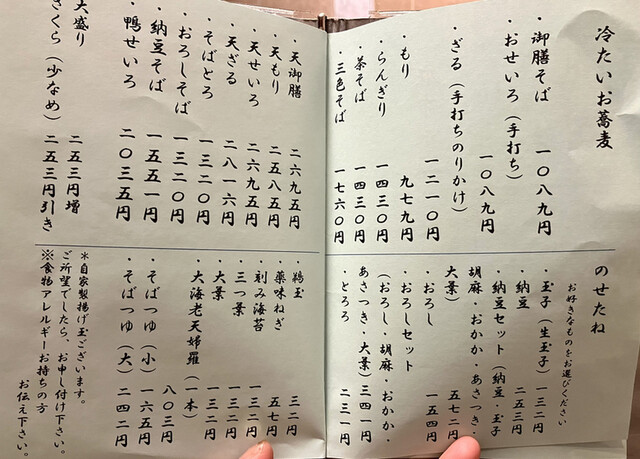 冷たいお蕎麦
・御膳そば 一〇八九円
・おせいろ（手打ち）
一〇八九円
・ざる（手打ちのりかけ）
一二一〇円
・もり 九七九円
・らんぎり 一四三〇円
・茶そば 一四三〇円
・三色そば 一七六〇円
・天御膳 二六九五円
・天もり 二五八五円
・天せいろ 二六九五円
・天ざる 二八一六円
・そばとろ 一三二〇円
・おろしそば 一三二〇円
・納豆そば 一五五一円
・鴨せいろ 二〇三五円
大盛り 二五三円増
さくら（少なめ） 二五三円引き
のせたね
お好きなものをお選びください
・玉子（生玉子） 一三二円
・納豆 二五三円
・納豆セット（納豆・玉子
胡麻・おかか・あさつき・
大葉） 五七二円
・おろし 一五四円
・おろしセット
（おろし・胡麻・おかか・
あさつき・大葉） 三四一円
・とろろ 二三一円
・鶉玉 三二円
・薬味ねぎ 五七円
・刻み海苔 一三二円
・三つ葉 一三二円
・大葉 一三二円
・大海老天婦羅（一本）
八〇三円
・そばつゆ（小） 一六五円
・そばつゆ（大） 二四二円
＊自家製揚げ玉ございます。
ご所望でしたら、お申し付け下さい。
※食物アレルギーお持ちの方
お伝え下さい。